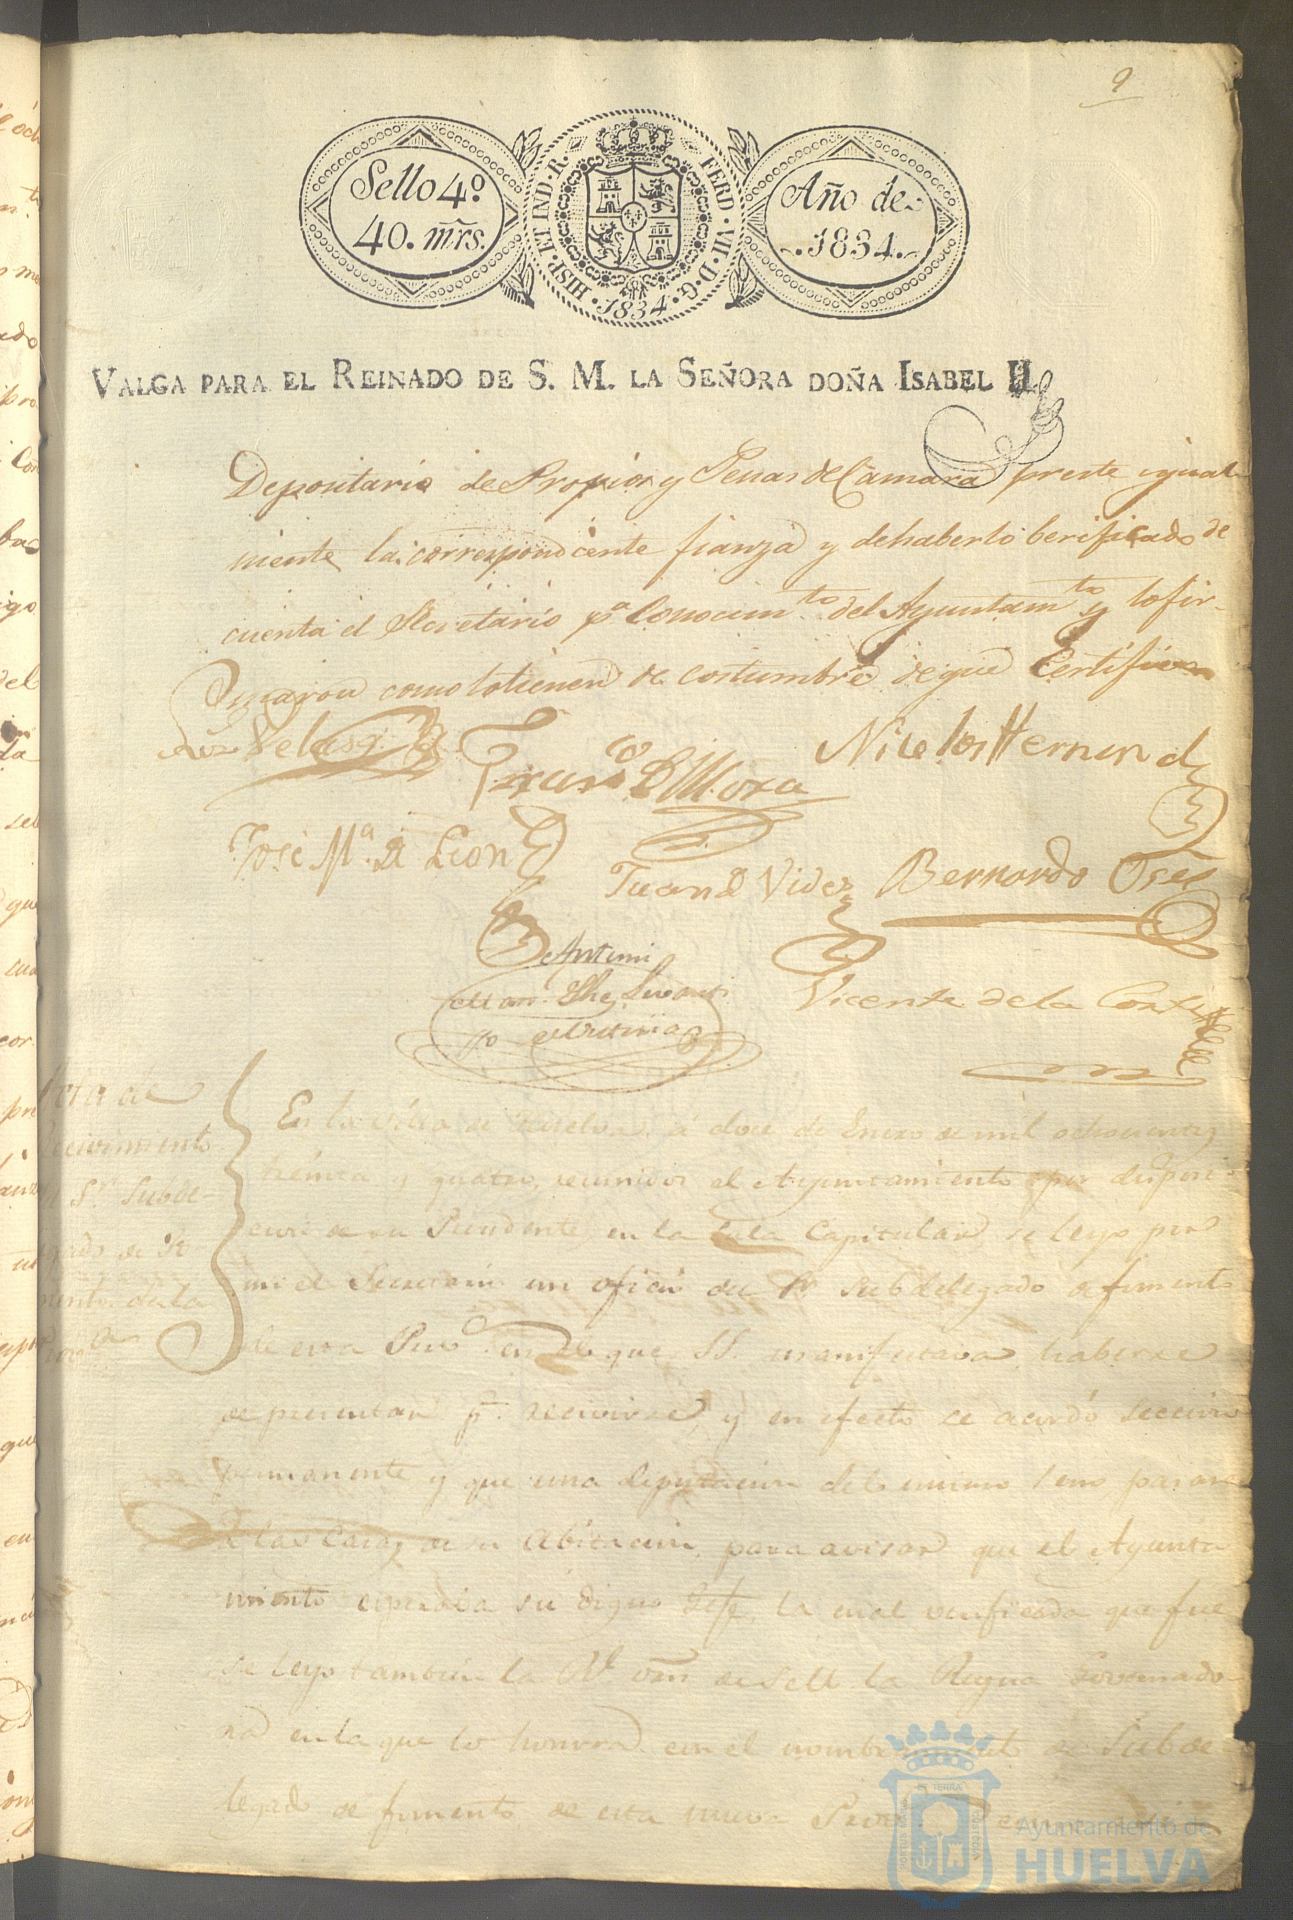 9
Sello 4º
40. mrs.
HISP. ET IND. R. FERD. VII. D. G. 1834
Año de
1834.
VALGA PARA EL REINADO DE S. M. LA SEÑORA DOÑA ISABEL II.
Depositario de Propios y Penas de Camara preste igual
mente la correspondiente fianza y de haberlo berificado de
cuenta el Secretario pª Conocimto del Ayuntamto y lo fir-
maron como lo tienen de costumbre de que Certifico
Franco D Mora
Nicolas Hernand
José Mª D Leon
Juan D Vides
Bernardo
Antonio
Vicente de la Corte
Acta de
Recivimiento
Sr Subde-
legado de Fo-
mento de la
Provª
En la Villa de Huelva á doce de Enero de mil ochocientos
treinta y quatro, reunidos el Ayuntamiento por disposi-
cion de su Presidente, en la Sala Capitular se leyo por
mi el Secretario un oficio del Sr Subdelegado de fomento
de esta Provª en el que SS. manifestava haberse
de presentar pª recivirse, y en efecto se acordó seccion
permanente y que una diputacion del mismo seno pasase
a las Casas de su Abitacion para avisar que el Ayunta
miento esperava su digno Gefe, la cual verificada que fue
se leyo tambien la Rl orn de S. M. la Reyna Governado
ra en la que lo honrra con el nombramiento de Subde-
legado de fomento de esta nueva Provª
Ayuntamiento de
HUELVA